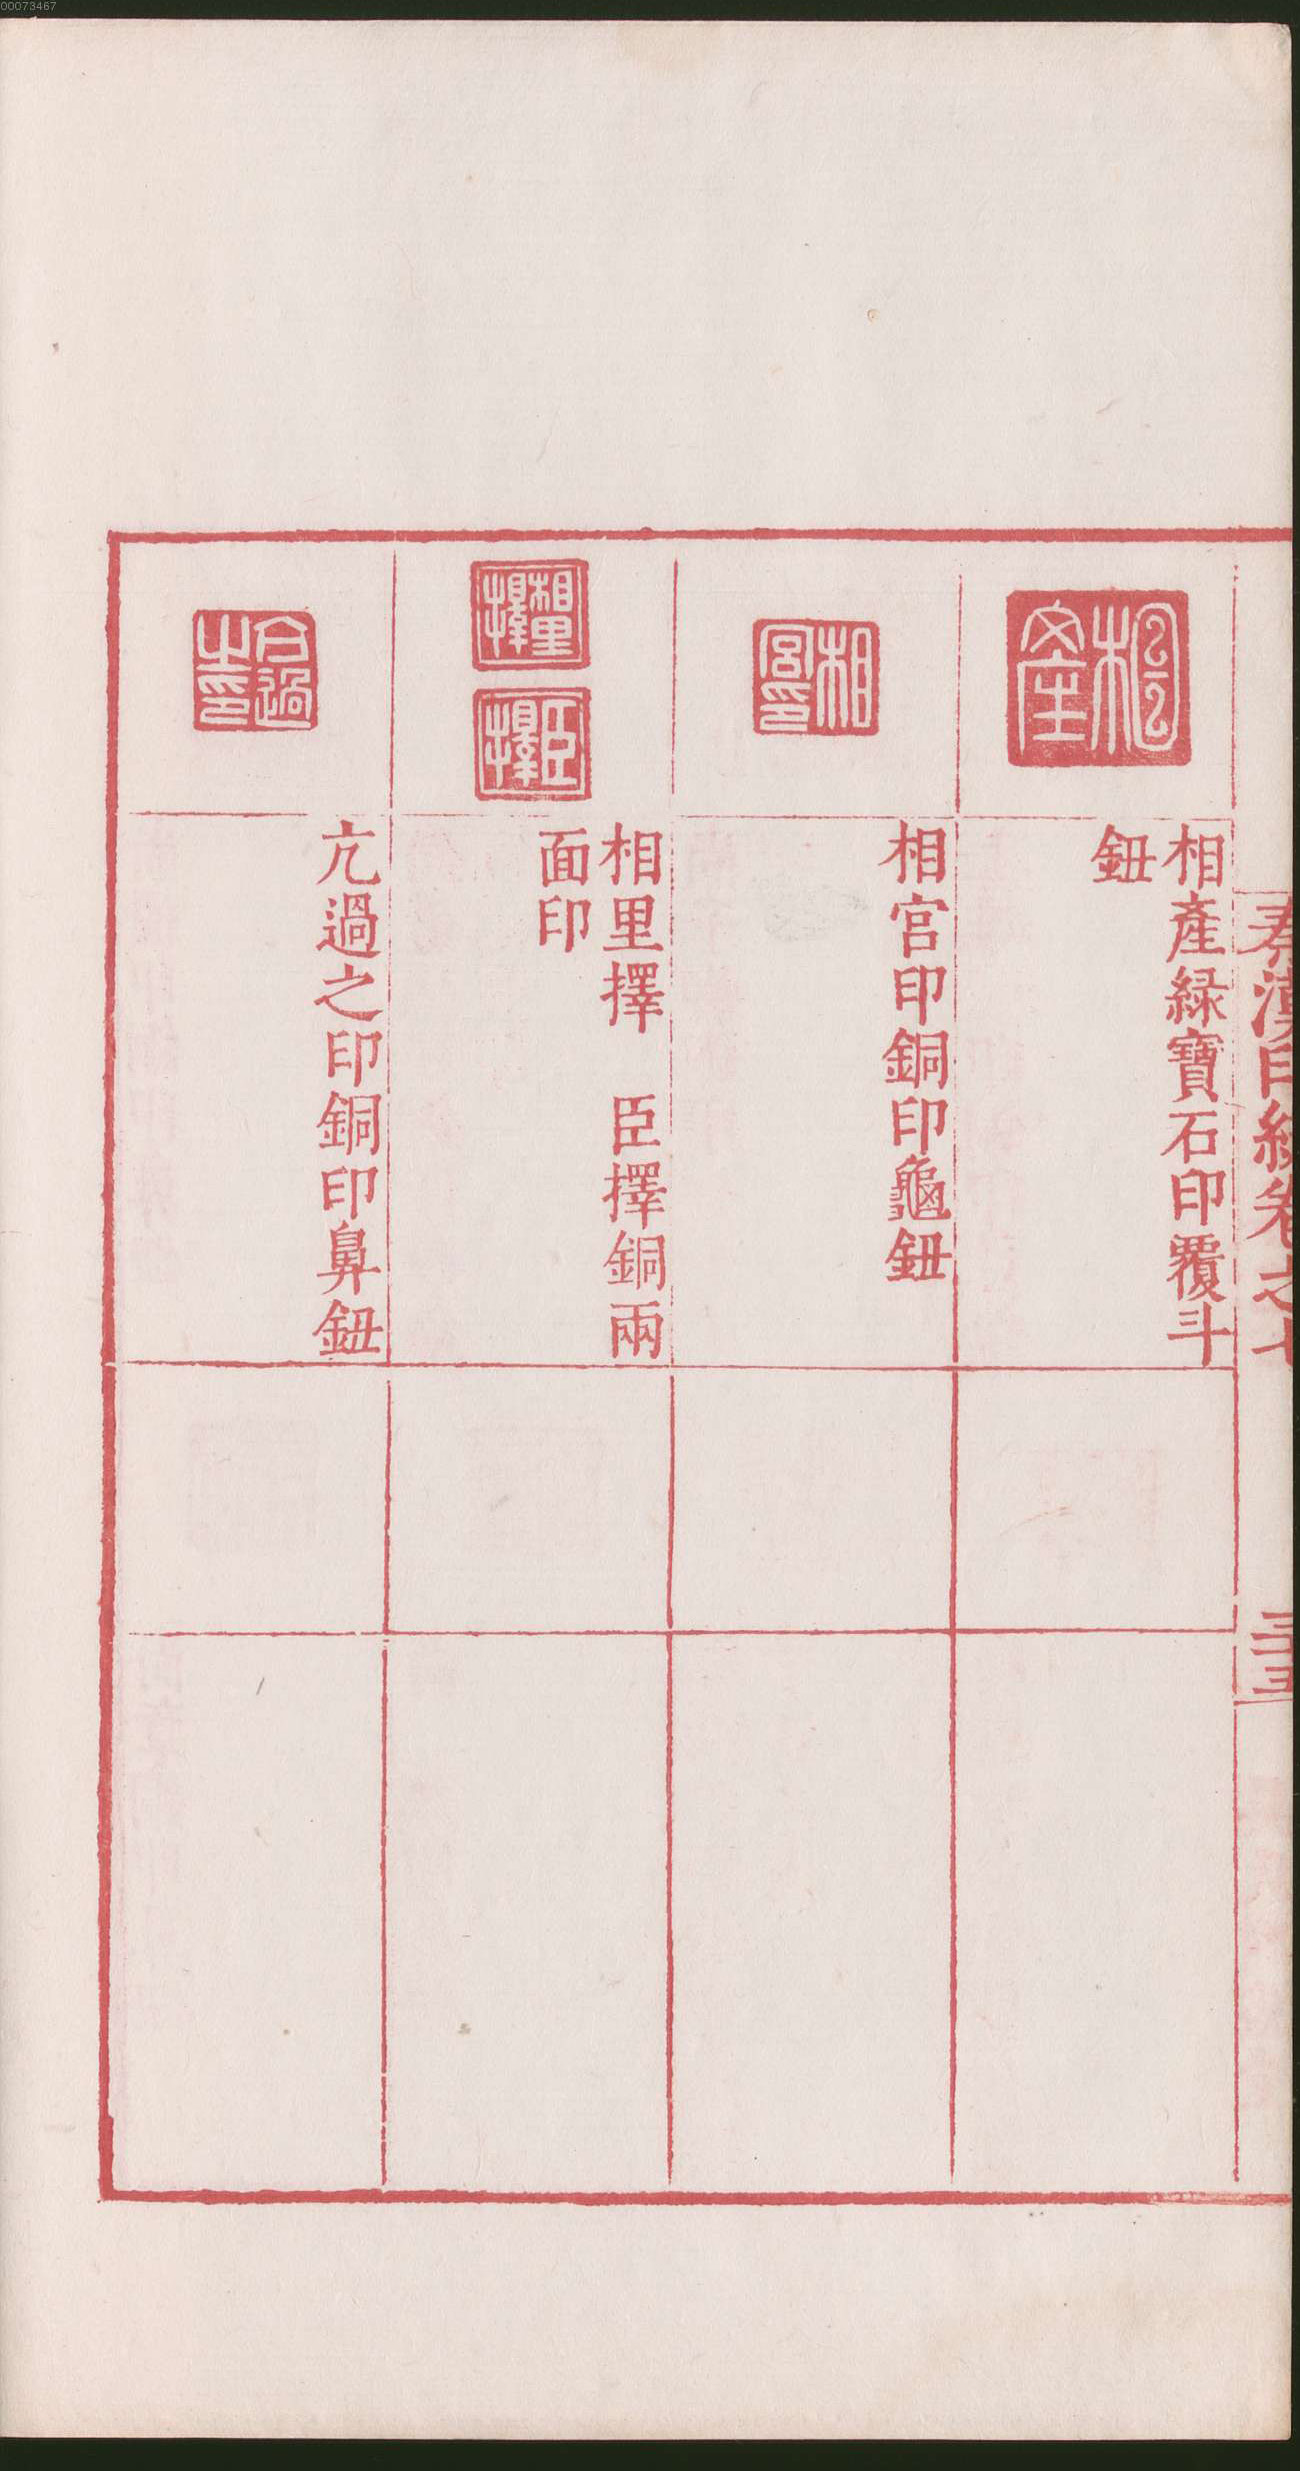 00073467
秦漢印統卷之七
三十五
相產
相產緑寶石印覆斗
鈕
相宮印
相宮印銅印龜鈕
相里擇
臣擇
相里擇 臣擇銅兩
面印
亢過之印
亢過之印銅印鼻鈕